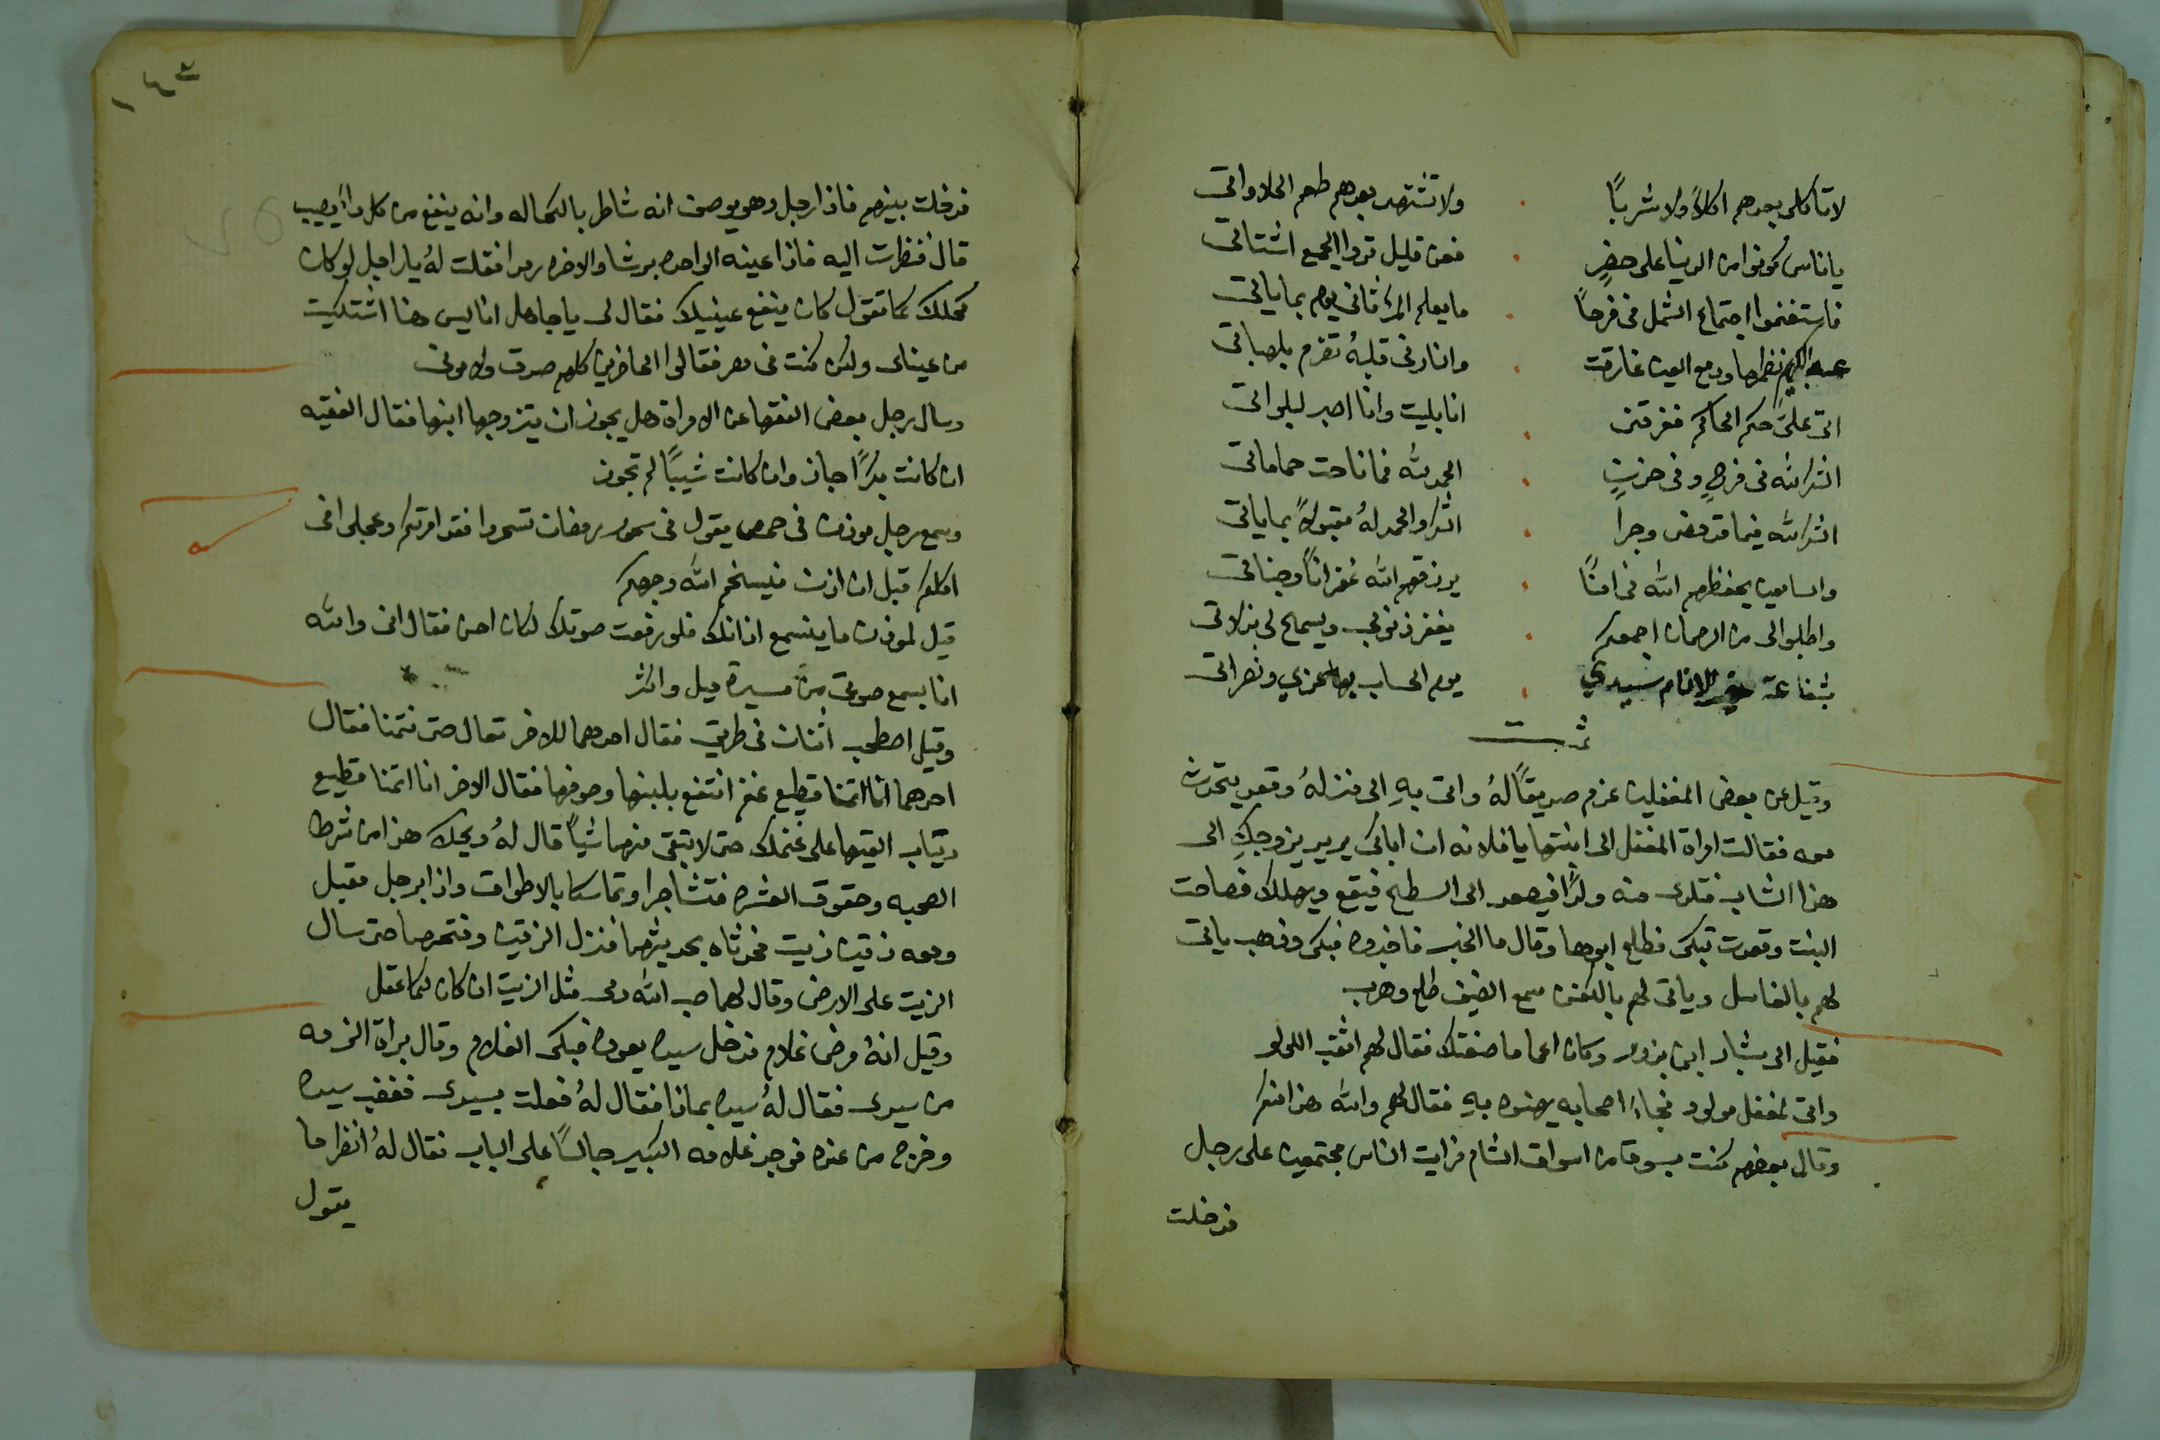 لا تاكلي بعدهم اكلاً ولا شرباً . ولا تشتهي بعدهم طعم الحلاواتى
يا ناس كونوا من الدنيا على حضرٍ . فعن قليل تروا الجمع اشتاتى
فاستغنموا اجتماع الشمل فى فرحاً . ما يعلم المرُ ثانى يوم بما ياتى
عبد الكريم نظمها ودمع العين غارقت . والنار فى قلبهُ تضرم بلهباتى
اتى علىَّ حكم الحاكم ففرقنى . انا بليت وانا اصبر لبلواتى
اشكر الله فى فرحٍ وفى حزنٍ . الحمد لله فما ناحت حماماتى
اشكر الله فيما قد مضى وجرا . اشكر والحمد لهُ مقبولاً بما ياتى
والسامعين يحفظهم الله فى امناً . يرزقهم الله غفراناً وجناتى
واطلبوا لى من الرحمان اجمعكم . يغفر ذنوبى ويسمح لى بزلاتى
بشفاعة الانام سيدي . يوم الحساب بها عزي ونصراتى
تمت
وقيل عن بعض المغفلين عزم صديقاً لهُ واتى بهِ الى منزلهُ وقعد يتحدث
معه فقالت امراة المغفل الى ابنتها يا فلانه ان اباكى يريد يزوجكِ الى
هذا الشاب فتلدى منه ولداً فيصعد الى السطح فيقع ويهلك فصاحت
البنت وقعدت تبكى فطلع ابوها وقال ما الخبر فاخبروه فبكى وذهب ياتى
لهم بالغاسل وياتى لهم بالكفن سمع الضيف طلع وهرب
فقيل الى بشار ابن بزور وكان اعما ما صنعتك فقال لهم اثقب اللولو
واتى لمغفل مولود فجاءُ اصحابه يهنوه بهِ فقال لهم والله هذا منكم
وقال بعضهم كنت بسوقا من اسواق الشام فرايت الناس مجتمعين على رجل
فدخلت
١٤٣
فدخلت بينهم فاذا رجل وهو يوصف انه شاطر بالكحاله وانه ينفع من كل داً يصيب
قال فنظرت اليه فاذا عينه الواحده برشا والاخره رمدا فقلت لهُ يا راجل لو كان
كحلك كما تقول كان ينفع عينيك فقال لى يا جاهل انا ليس هنا اشتكيت
من عيناى ولكن كنت فى مصر فقالوا الحاضرين كلهم صدق والا مونى
وسال رجل بعض الفقها عن الامراة هل يجوز ان يتزوجها ابنها فقال الفقيه
ان كانت بكراً جاز وان كانت ثيباً لم تجوز
وسمع رجل موذن فى حمص يقول فى سحور رمضان تسحروا فقد امرتكم وعجلى فى
اكلكم قبل ان اذن فيسخم الله وجوهكم
قيل لموذن ما ينسمع اذانك فلو رفعت صوتك لكان احسن فقال انى والله
انا بسمع صوتى من مسيرة ميل واكثر
وقيل اصطحب اثنان فى طريق فقال احدهما للاخر تعال حتى نتمنا فقال
احدهما انا اتمنا قطيع غنم انتفع بلبنها وصوفها فقال الاخر انا اتمنا قطيع
دياب القيتها على غنمك حتى لا تبقى منهم شياً قال لهُ ويحك هذا من شرط
الصحبه وحقوق العشره فتشاجرا وتماسكا بالاطواق واذا برجل مقبل
ومعه زقين زيت فحدثاه بحديثهما فنزل الزقين وفتحهما حتى سال
الزيت على الارض وقال لهما صب الله دمى مثل الزيت ان كان لكما عقل
وقيل انهُ مرض غلام فدخل سيده يعوده فبكى الغلام وقال براة الذمه
من سيدى فقال لهُ سيده بماذا فقال لهُ فعلت بسيدى فغضب سيده
وخرج من عنده فوجد غلامه الكبير جالساً على الباب فقال لهُ انظر ما
يقول